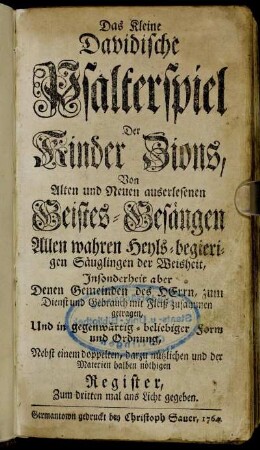 Das Kleine
Davidische
Psalterspiel
Der
Kinder Zions,
Von
Alten und Neuen auserlesenen
Geistes-Gesängen
Allen wahren Heyls-begieri-
gen Säuglingen der Weisheit,
Insonderheit aber
Denen Gemeinden des HErrn, zum
Dienst und Gebrauch mit Fleiß zusammen
getragen,
Und in gegenwärtig-beliebiger Form
und Ordnung,
Nebst einem doppelten, darzu nützlichen und der
Materien halben nöthigen
Register,
Zum dritten mal ans Licht gegeben.
Germantown gedruckt bey Christoph Sauer, 1764.